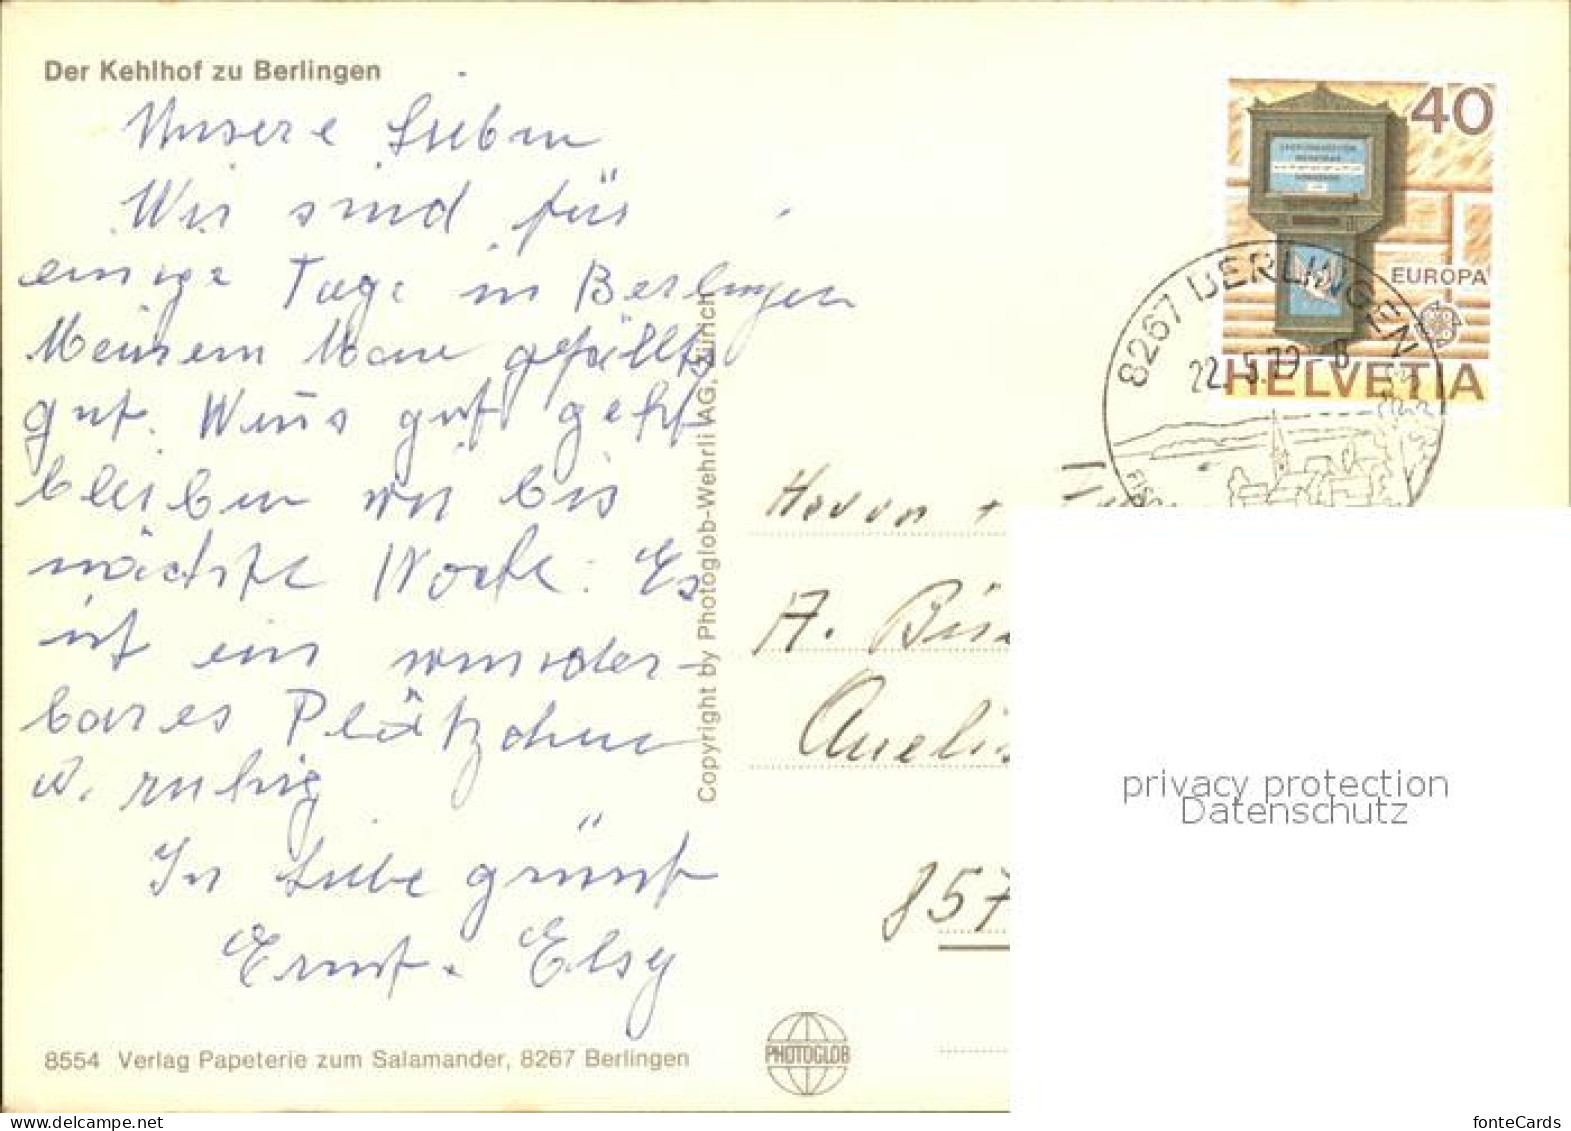 Der Kehlhof zu Berlingen
Unsere Lieben
Wir sind für
einige Tage in Berlingen
Meinem Mann gefällts
gut. Wens gut geht
bleiben wir bis
nächste Woche. Es
ist ein wunder-
bares Plätzchen
u. ruhig
In Liebe grüsst
Ernst. Elsy
8554 Verlag Papeterie zum Salamander, 8267 Berlingen
Copyright by Photoglob-Wehrli AG, Zürich
PHOTOGLOB
40
EUROPA
HELVETIA
8267 BERLINGEN
22.5.79-8
Herrn +
A.
857
privacy protection
Datenschutz
fonteCards